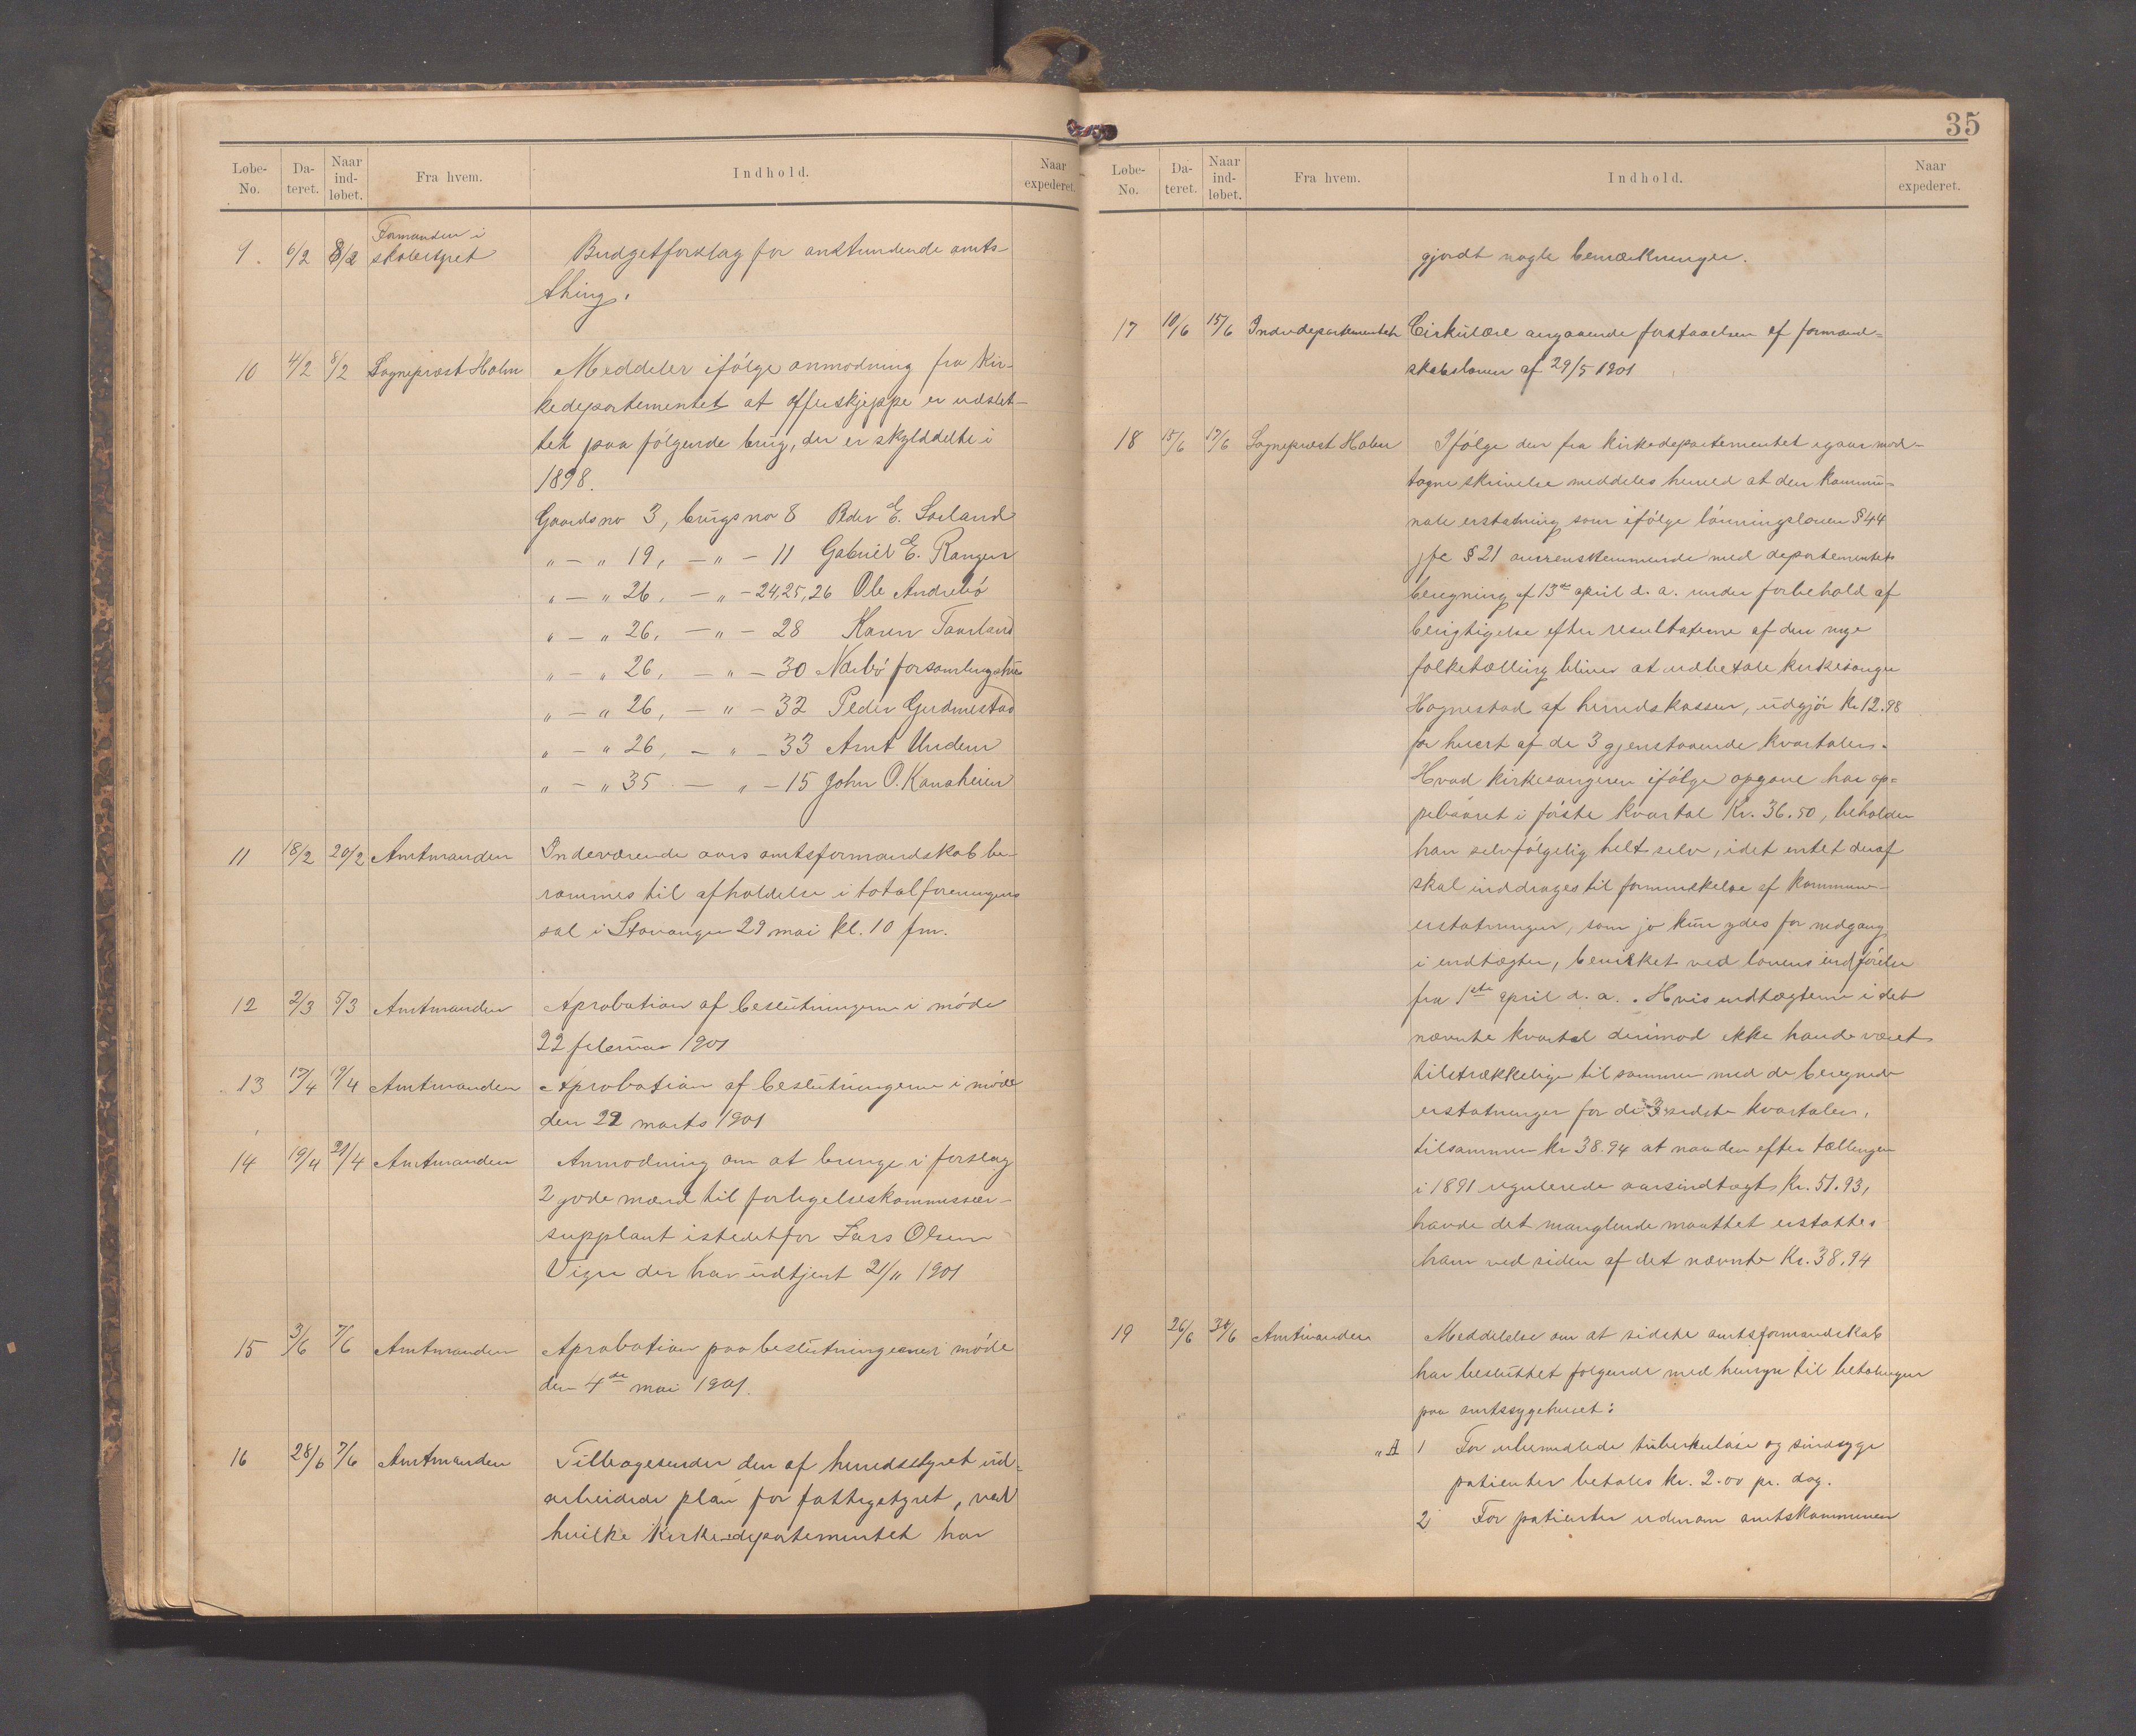 Løbe-No. Dateret. Naar indløbet. Fra hvem. Indhold. Naar expederet.
9. 6/2 8/2 Formanden i skolestyret Budgetforslag for anstundende amts-
thing.
10 4/2 8/2 Sogneprest Holm Meddeler ifølge anmodning fra Kir-
kedepartementet at offerskjeppe er udslet-
tet paa følgende brug, der er skylddelte i
1898.
Gaards no 3, brugs no 8 Peder E. Sæland
" – " 19, – " – 11 Gabriel E.
" – " 26, – " – 24, 25, 26 Ole Andrebø
" – " 26, – " – 28 Karen Taarland
" – " 26, – " – 30 Nærbø forsamlingshus
" – " 26, – " – 32 Peder Gudmestad
" – " 26, – " – 33 Arnt Undem
" – " 35 – " – 15 John O. Kanaheien
11 18/2 20/2 Amtmanden Indeværende aars amtsformandskab be-
rammes til afholdelse i totalforeningens
sal i Stavanger 29 mai kl. 10 fm.
12 2/3 5/3 Amtmanden Aprobation af beslutningerne i møde
22 februar 1901
13 17/4 19/4 Amtmanden Aprobation af beslutningerne i møde
den 22 marts 1901
14 19/4 21/4 Amtmanden Anmodning om at bringe i forslag
2 gode mænd til forligelseskommissær-
supplant istedetfor Lars Olsen
Vigre der har udtjent 21/11 1901
15 3/6 7/6 Amtmanden Aprobation paa beslutningerne i møde
den 4de mai 1901.
16 28/6 7/6 Amtmanden Tilbagesender den af herredsstyret ud-
arbeidede plan for fattigstyret, ved
hvilke Kirkedepartementet har
35
Løbe-No. Dateret. Naar indløbet. Fra hvem. Indhold. Naar expederet.
gjordt nogle bemærkninger.
17 10/6 15/6 Indredepartementet Cirkulære angaaende forstaaelsen af formand-
skabsloven af 29/5 1901
18 15/6 17/6 Sogneprest Holm Ifølge den fra kirkedepartementet igaar mod-
tagne skrivelse meddeles herved at den kommu-
nale erstatning som ifølge lønningsloven § 44
jfr § 21 overensstemmende med departementets
beregning af 13de april d. a. under forbehold af
berigtigelse efter resultaterne af den nye
folketælling bliver at udbetale kirkesanger
Hognestad af herredskassen, udgjør Kr 12.98
for hvert af de 3 gjenstaaende kvartaler.
Hvad kirkesangeren ifølge opgave har op-
pebaaret i første kvartal Kr. 36.50, beholder
han selvfølgelig helt selv, idet intet deraf
skal inddrages til formindskelse af kommune-
erstatningen, som jo kun ydes for nedgang
i indtægter, bevirket ved lovens indførelse
fra 1ste april d. a. . Hvis indtægterne i det
nævnte kvartal derimod ikke havde været
tilstrækkelige til sammen med de beregnede
erstatninger for de 3 sidste kvartaler,
tilsammen kr 38.94 at naa den efter tællingen
i 1891 regulerede aarsindtægt Kr. 51.93,
havde det manglende maattet erstattes
ham ved siden af det nævnte Kr. 38.94
19 26/6 Amtmanden Meddelelse om at sidste amtsformandskab
har besluttet følgende med hensyn til betalingen
paa amtssygehuset:
"A 1 For ubemidlede tuberkuløse og sindsyge
patienter betales kr. 2.00 pr. dag.
2 For patienter udenom amtskommunen